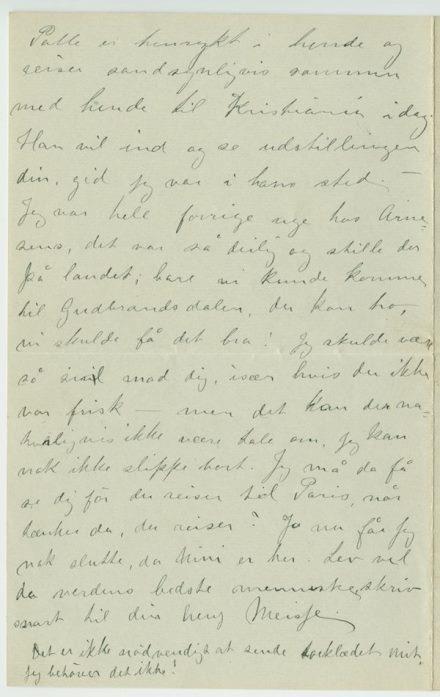 Palle er henrykt i hende og
reiser sandsynligvis sammen
med hende til Kristiania idag.
Han vil ind og se udstillingen
din, gid jeg var i hans sted. —
Jeg var hele forrige uge hos Arne-
sens, det var så deilig og stille der
på landet; bare vi kunde komme
til Gudbrandsdalen, du kan tro,
vi skulde få det bra! Jeg skulde være
så snil mod dig, især hvis du ikke
var frisk — men det kan der na-
turligvis ikke være tale om, jeg kan
nok ikke slippe bort. Jeg må da få
se dig för du reiser til Paris, når
tænker du, du reiser? Ja nu får jeg
nok slutte, da Mini er her. Lev vel
du verdens bedste menneske, skriv
snart til din heng Meisse.
Det er ikke nödvendigt at sende torklædet mit,
jeg behöver det ikke!